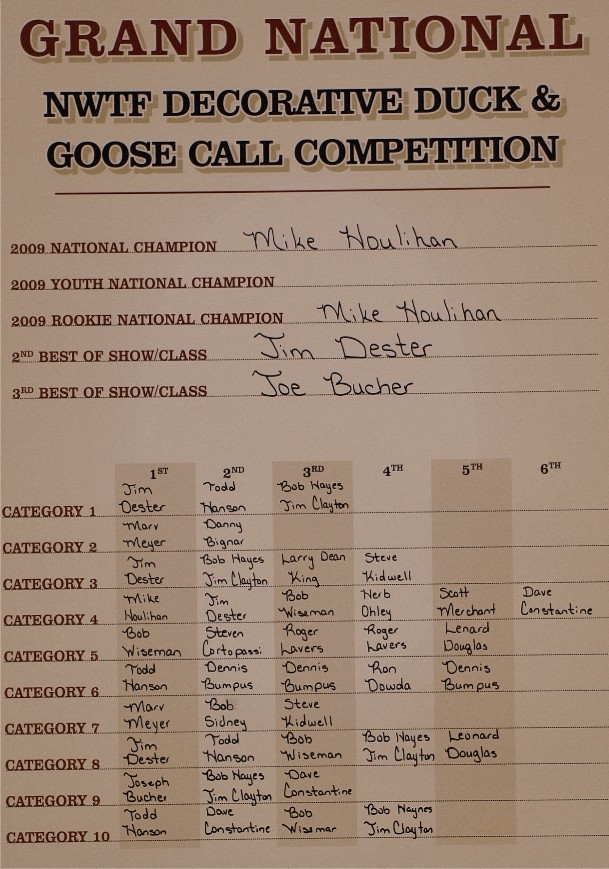 GRAND NATIONAL
NWTF DECORATIVE DUCK &
GOOSE CALL COMPETITION
2009 NATIONAL CHAMPION Mike Houlihan
2009 YOUTH NATIONAL CHAMPION
2009 ROOKIE NATIONAL CHAMPION Mike Houlihan
2ND BEST OF SHOW/CLASS Jim Dester
3RD BEST OF SHOW/CLASS Joe Bucher
1ST 2ND 3RD 4TH 5TH 6TH
Jim Todd Bob Hayes
CATEGORY 1 Dester Hanson Jim Clayton
Marv Danny
CATEGORY 2 Meyer Bignar
Jim Bob Hayes Larry Dean Steve
CATEGORY 3 Dester Jim Clayton King Kidwell
Mike Jim Bob Herb Scott Dave
CATEGORY 4 Houlihan Dester Wiseman Ohley Merchant Constantine
Bob Steven Roger Roger Lenard
CATEGORY 5 Wiseman Cortopassi Lavers Lavers Douglas
Todd Dennis Dennis Ron Dennis
CATEGORY 6 Hanson Bumpus Bumpus Dowda Bumpus
Marv Bob Steve
CATEGORY 7 Meyer Sidney Kidwell
Jim Todd Bob Bob Hayes Leonard
CATEGORY 8 Dester Hanson Wiseman Jim Clayton Douglas
Joseph Bob Hayes Dave
CATEGORY 9 Bucher Jim Clayton Constantine
Todd Dave Bob Bob Haynes
CATEGORY 10 Hanson Constantine Wisemar Jim Clayton